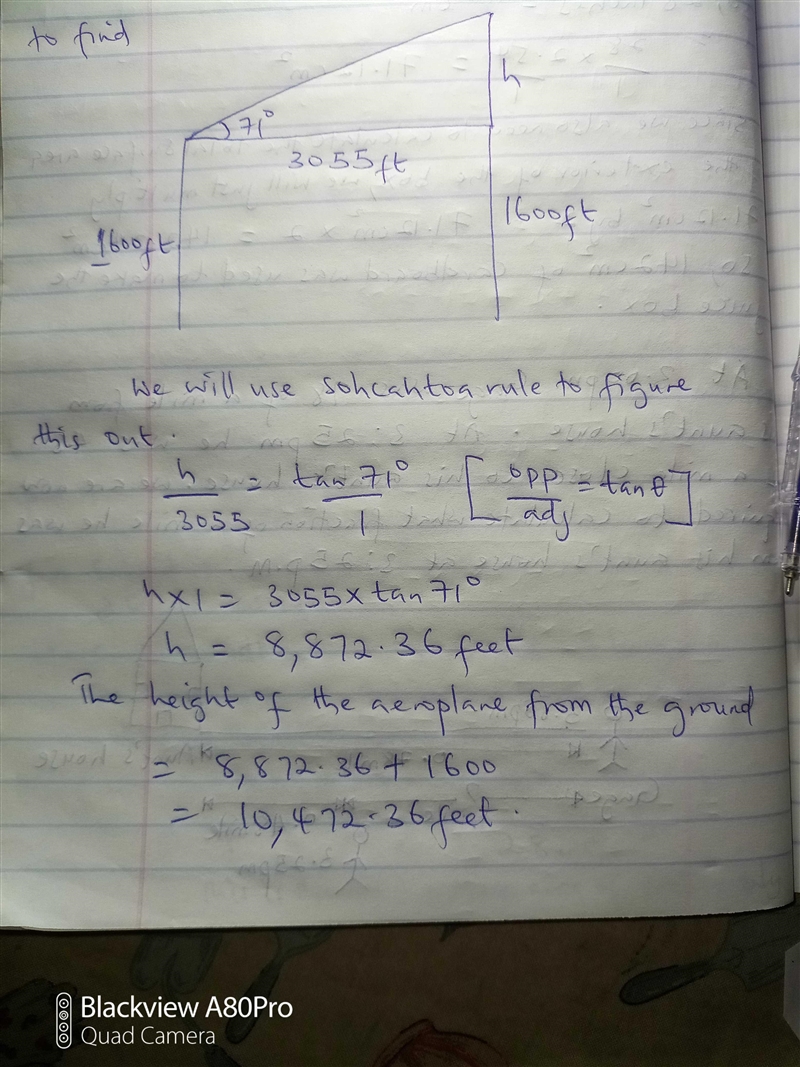 to find
h
71°
3055ft
1600ft
1600ft
We will use sohcahtoa rule to figure
this out.
h/3055 = tan 71°/1 [opp/adj = tanθ]
h×1 = 3055×tan 71°
h = 8,872.36 feet
The height of the aeroplane from the ground
= 8,872.36 + 1600
= 10,472.36 feet.
Blackview A80Pro
Quad Camera